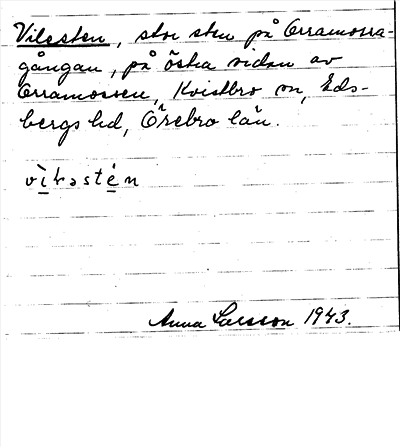 Vilesten, stor sten på Orramossa-
gångan, på östra sidan av
Orramossen, Kvistbro sn, Eds-
bergs hd, Örebro län.
vìłəsté̱n
Anna Larsson 1943.